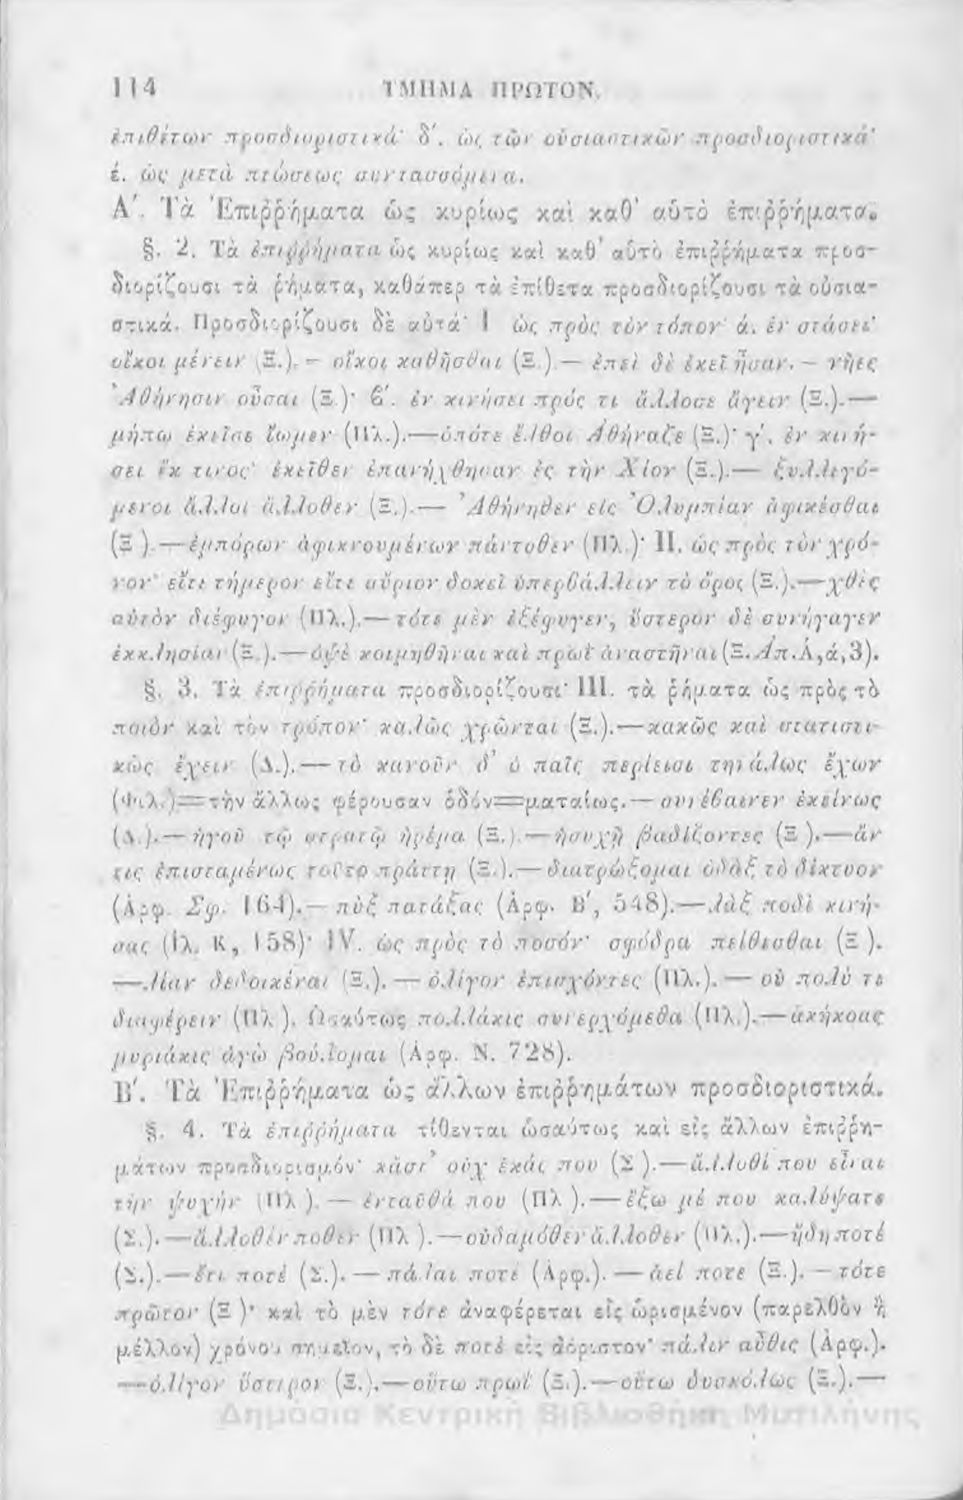 114 ΤΜΗΜΑ ΠΡΩΤΟΝ.
ἐπιθέτων προσδιοριστικά· δ΄. ὡς τῶν οὐσιαστικῶν προσδιοριστικά·
έ. ὡς μετὰ πτώσεως συντασσόμενα.
Α΄. Τὰ Ἐπιῤῥήματα ὡς κυρίως καὶ καθ’ αὑτὸ ἐπιῤῥήματα.
§. 2. Τὰ ἐπιῤῥήματα ὡς κυρίως καὶ καθ’ αὑτὸ ἐπιῤῥήματα προσ-
διορίζουσι τὰ ῥήματα, καθάπερ τὰ ἐπίθετα προσδιορίζουσι τὰ οὐσια-
στικά. Προσδιορίζουσι δὲ αὐτά· Ι ὡς πρὸς τὸν τόπον· ά. ἐν στάσει·
οἴκοι μένειν (Ξ.).— οἴκοι καθῆσθαι (Ξ.).— ἐπεὶ δὲ ἐκεῖ ἦσαν.— νῆες
Ἀθήνησιν οὖσαι (Ξ.)· ϐ΄. ἐν κινήσει πρός τι ἄλλοσε ἄγειν (Ξ.).—
μήπω ἐκεῖσε ἴωμεν (Πλ.).—ὁπότε ἔλθοι Ἀθήναζε (Ξ.)· γ΄. ἐν κινή-
σει ἔκ τινος· ἐκεῖθεν ἐπανήχθησαν ἐς τὴν Χίον (Ξ.).— ξυλλεγό-
μενοι ἄλλοι ἄλλοθεν (Ξ.).— Ἀθήνηθεν εἰς Ὀλυμπίαν ἀφικέσθαι
(Ξ.).—ἐμπόρων ἀφικνουμένων πάντοθεν (Πλ.)· ΙΙ. ὡς πρὸς τὸν χρό-
νον· εἴτε τήμερον εἴτε αὔριον δοκεῖ ὑπερϐάλλειν τὸ ὄρος (Ξ.).—χθὲς
αὐτὸν διέφυγον (Πλ.).—τότε μὲν ἐξέφυγεν, ὕστερον δὲ συνήγαγεν
ἐκκλησίαν (Ξ.).—ὀψὲ κοιμηθῆναι καὶ πρωῒ ἀναστῆναι (Ξ. Ἀπ. Ά, ά, 3).
§. 3. Τὰ ἐπιῤῥήματα προσδιορίζουσι· ΙΙΙ. τὰ ῥήματα ὡς πρὸς τὸ
ποιὸν καὶ τὸν τρόπον· καλῶς χρῶνται (Ξ.).—κακῶς καὶ στατιστι-
κῶς ἔχειν (Δ.).—τὸ κανοῦν δ’ ὁ παῖς περίεισι τηνάλως ἔχων
(Φιλ.)=τὴν ἄλλως φέρουσαν ὁδόν=ματαίως.— συνέβαινεν ἐκείνως
(Δ.).— ἡγοῦ τῷ στρατῷ ἠρέμα (Ξ.).— ἡσυχῆ βαδίζοντες (Ξ.).—ἄν
τις ἐπισταμένως τοῦτο πράττῃ (Ξ.).—διατρώξομαι ὀδὰξ τὸ δίκτυον
(Ἀρφ. Σφ. 164).— πὺξ πατάξας (Ἀρφ. Β΄, 548).—λὰξ ποδὶ κινή-
σας (Ἰλ. Κ, 158)· IV. ὡς πρὸς τὸ ποσόν· σφόδρα πείθεσθαι (Ξ.).
—λίαν δεδοικέναι (Ξ.).— ὀλίγον ἐπισχόντες (Πλ.).— οὐ πολύ τι
διαφέρειν (Πλ.). Ὡσαύτως πολλάκις συνερχόμεθα (Πλ.).—ἀκήκοας
μυριάκις ἁγὼ βούλομαι (Ἀρφ. Ν. 728).
Β΄. Τὰ Ἐπιῤῥήματα ὡς ἄλλων ἐπιῤῥημάτων προσδιοριστικά.
§. 4. Τὰ ἐπιῤῥήματα τίθενται ὡσαύτως καὶ εἰς ἄλλων ἐπιῤῥη-
μάτων προσδιορισμόν· κἄστ’ οὐχ ἑκάς που (Σ.).—ἄλλοθί που εἶναι
τὴν ψυχήν (Πλ.).— ἐνταῦθά που (Πλ.).—ἔξω μέ που καλύψατε
(Σ.).—ἄλλοθέν ποθεν (Πλ.).—οὐδαμόθεν ἄλλοθεν (Πλ.).—ἤδη ποτέ
(Σ.).—ἔτι ποτέ (Σ.).—πάλαι ποτέ (Ἀρφ.).—ἀεί ποτε (Ξ.).—τότε
πρῶτον (Ξ.)· καὶ τὸ μὲν τότε ἀναφέρεται εἰς ὡρισμένον (παρελθὸν ἢ
μέλλον) χρόνου σημεῖον, τὸ δὲ ποτέ εἰς ἀόριστον· πάλιν αὖθις (Ἀρφ.).
—ὀλίγον ὕστερον (Ξ.).—οὕτω πρωΐ (Ξ.).—οὕτω δυσκόλως (Ξ.).—
Δημόσια Κεντρική Βιβλιοθήκη Μυτιλήνης